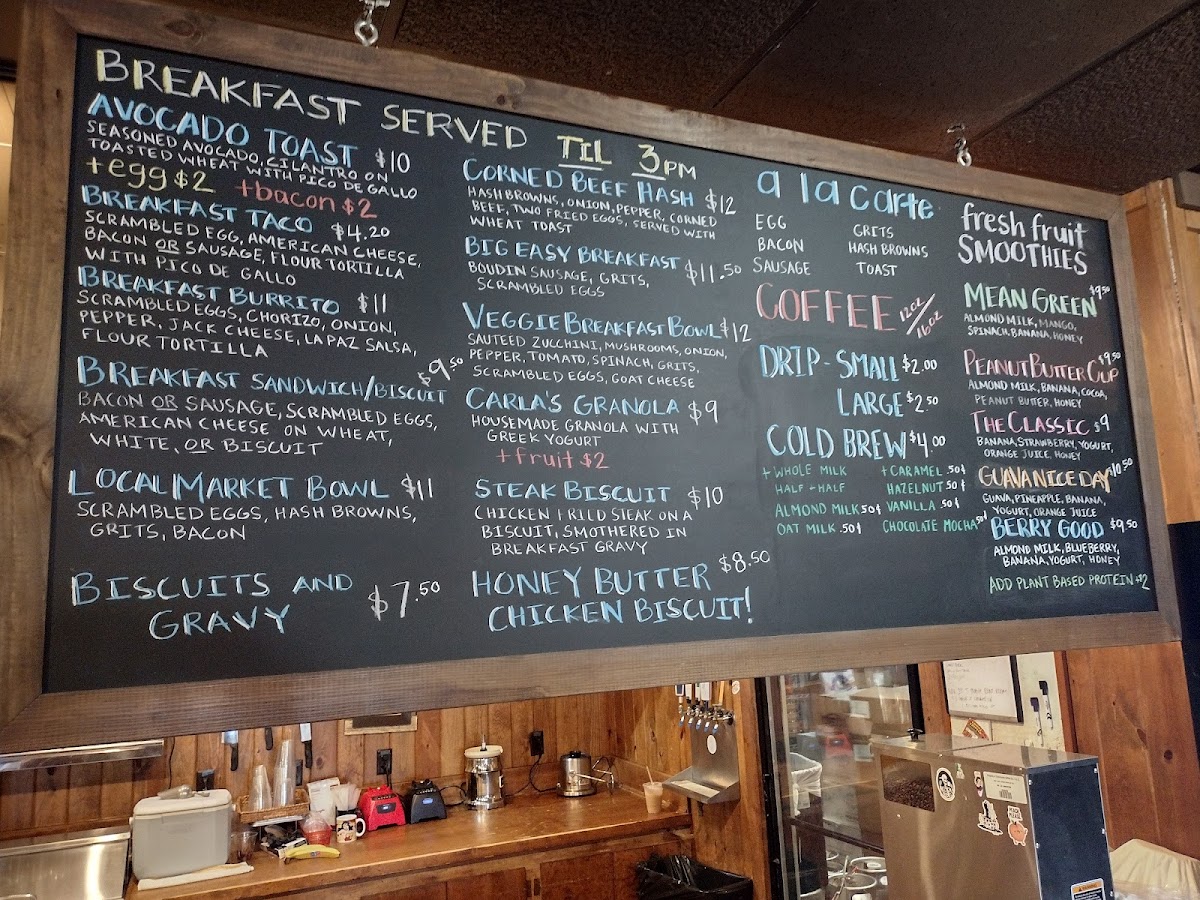 BREAKFAST SERVED TIL 3PM
AVOCADO TOAST $10
SEASONED AVOCADO, CILANTRO ON
TOASTED WHEAT WITH PICO DE GALLO
+egg $2 +bacon $2
BREAKFAST TACO $4.20
SCRAMBLED EGG, AMERICAN CHEESE,
BACON OR SAUSAGE, FLOUR TORTILLA
WITH PICO DE GALLO
BREAKFAST BURRITO $11
SCRAMBLED EGGS, CHORIZO, ONION,
PEPPER, JACK CHEESE, LA PAZ SALSA,
FLOUR TORTILLA
BREAKFAST SANDWICH/BISCUIT $9.50
BACON OR SAUSAGE, SCRAMBLED EGGS,
AMERICAN CHEESE ON WHEAT,
WHITE, OR BISCUIT
LOCAL MARKET BOWL $11
SCRAMBLED EGGS, HASH BROWNS,
GRITS, BACON
BISCUITS AND
GRAVY $7.50
CORNED BEEF HASH $12
HASH BROWNS, ONION, PEPPER, CORNED
BEEF, TWO FRIED EGGS, SERVED WITH
WHEAT TOAST
BIG EASY BREAKFAST $11.50
BOUDIN SAUSAGE, GRITS,
SCRAMBLED EGGS
VEGGIE BREAKFAST BOWL $12
SAUTEED ZUCCHINI, MUSHROOMS, ONION,
PEPPER, TOMATO, SPINACH, GRITS,
SCRAMBLED EGGS, GOAT CHEESE
CARLA'S GRANOLA $9
HOUSEMADE GRANOLA WITH
GREEK YOGURT
+fruit $2
STEAK BISCUIT $10
CHICKEN FRIED STEAK ON A
BISCUIT, SMOTHERED IN
BREAKFAST GRAVY
HONEY BUTTER $8.50
CHICKEN BISCUIT!
a la carte
EGG GRITS
BACON HASH BROWNS
SAUSAGE TOAST
COFFEE 12oz/16oz
DRIP - SMALL $2.00
LARGE $2.50
COLD BREW $4.00
+ WHOLE MILK + CARAMEL .50¢
HALF + HALF HAZELNUT .50¢
ALMOND MILK .50¢ VANILLA .50¢
OAT MILK .50¢ CHOCOLATE MOCHA .50¢
fresh fruit
SMOOTHIES
MEAN GREEN $9.50
ALMOND MILK, MANGO,
SPINACH, BANANA, HONEY
PEANUT BUTTER CUP $9.50
ALMOND MILK, BANANA, COCOA,
PEANUT BUTTER, HONEY
THE CLASSIC $9
BANANA, STRAWBERRY, YOGURT,
ORANGE JUICE, HONEY
GUAVA NICE DAY $10.50
GUAVA, PINEAPPLE, BANANA,
YOGURT, ORANGE JUICE
BERRY GOOD $9.50
ALMOND MILK, BLUEBERRY,
BANANA, YOGURT, HONEY
ADD PLANT BASED PROTEIN +$2